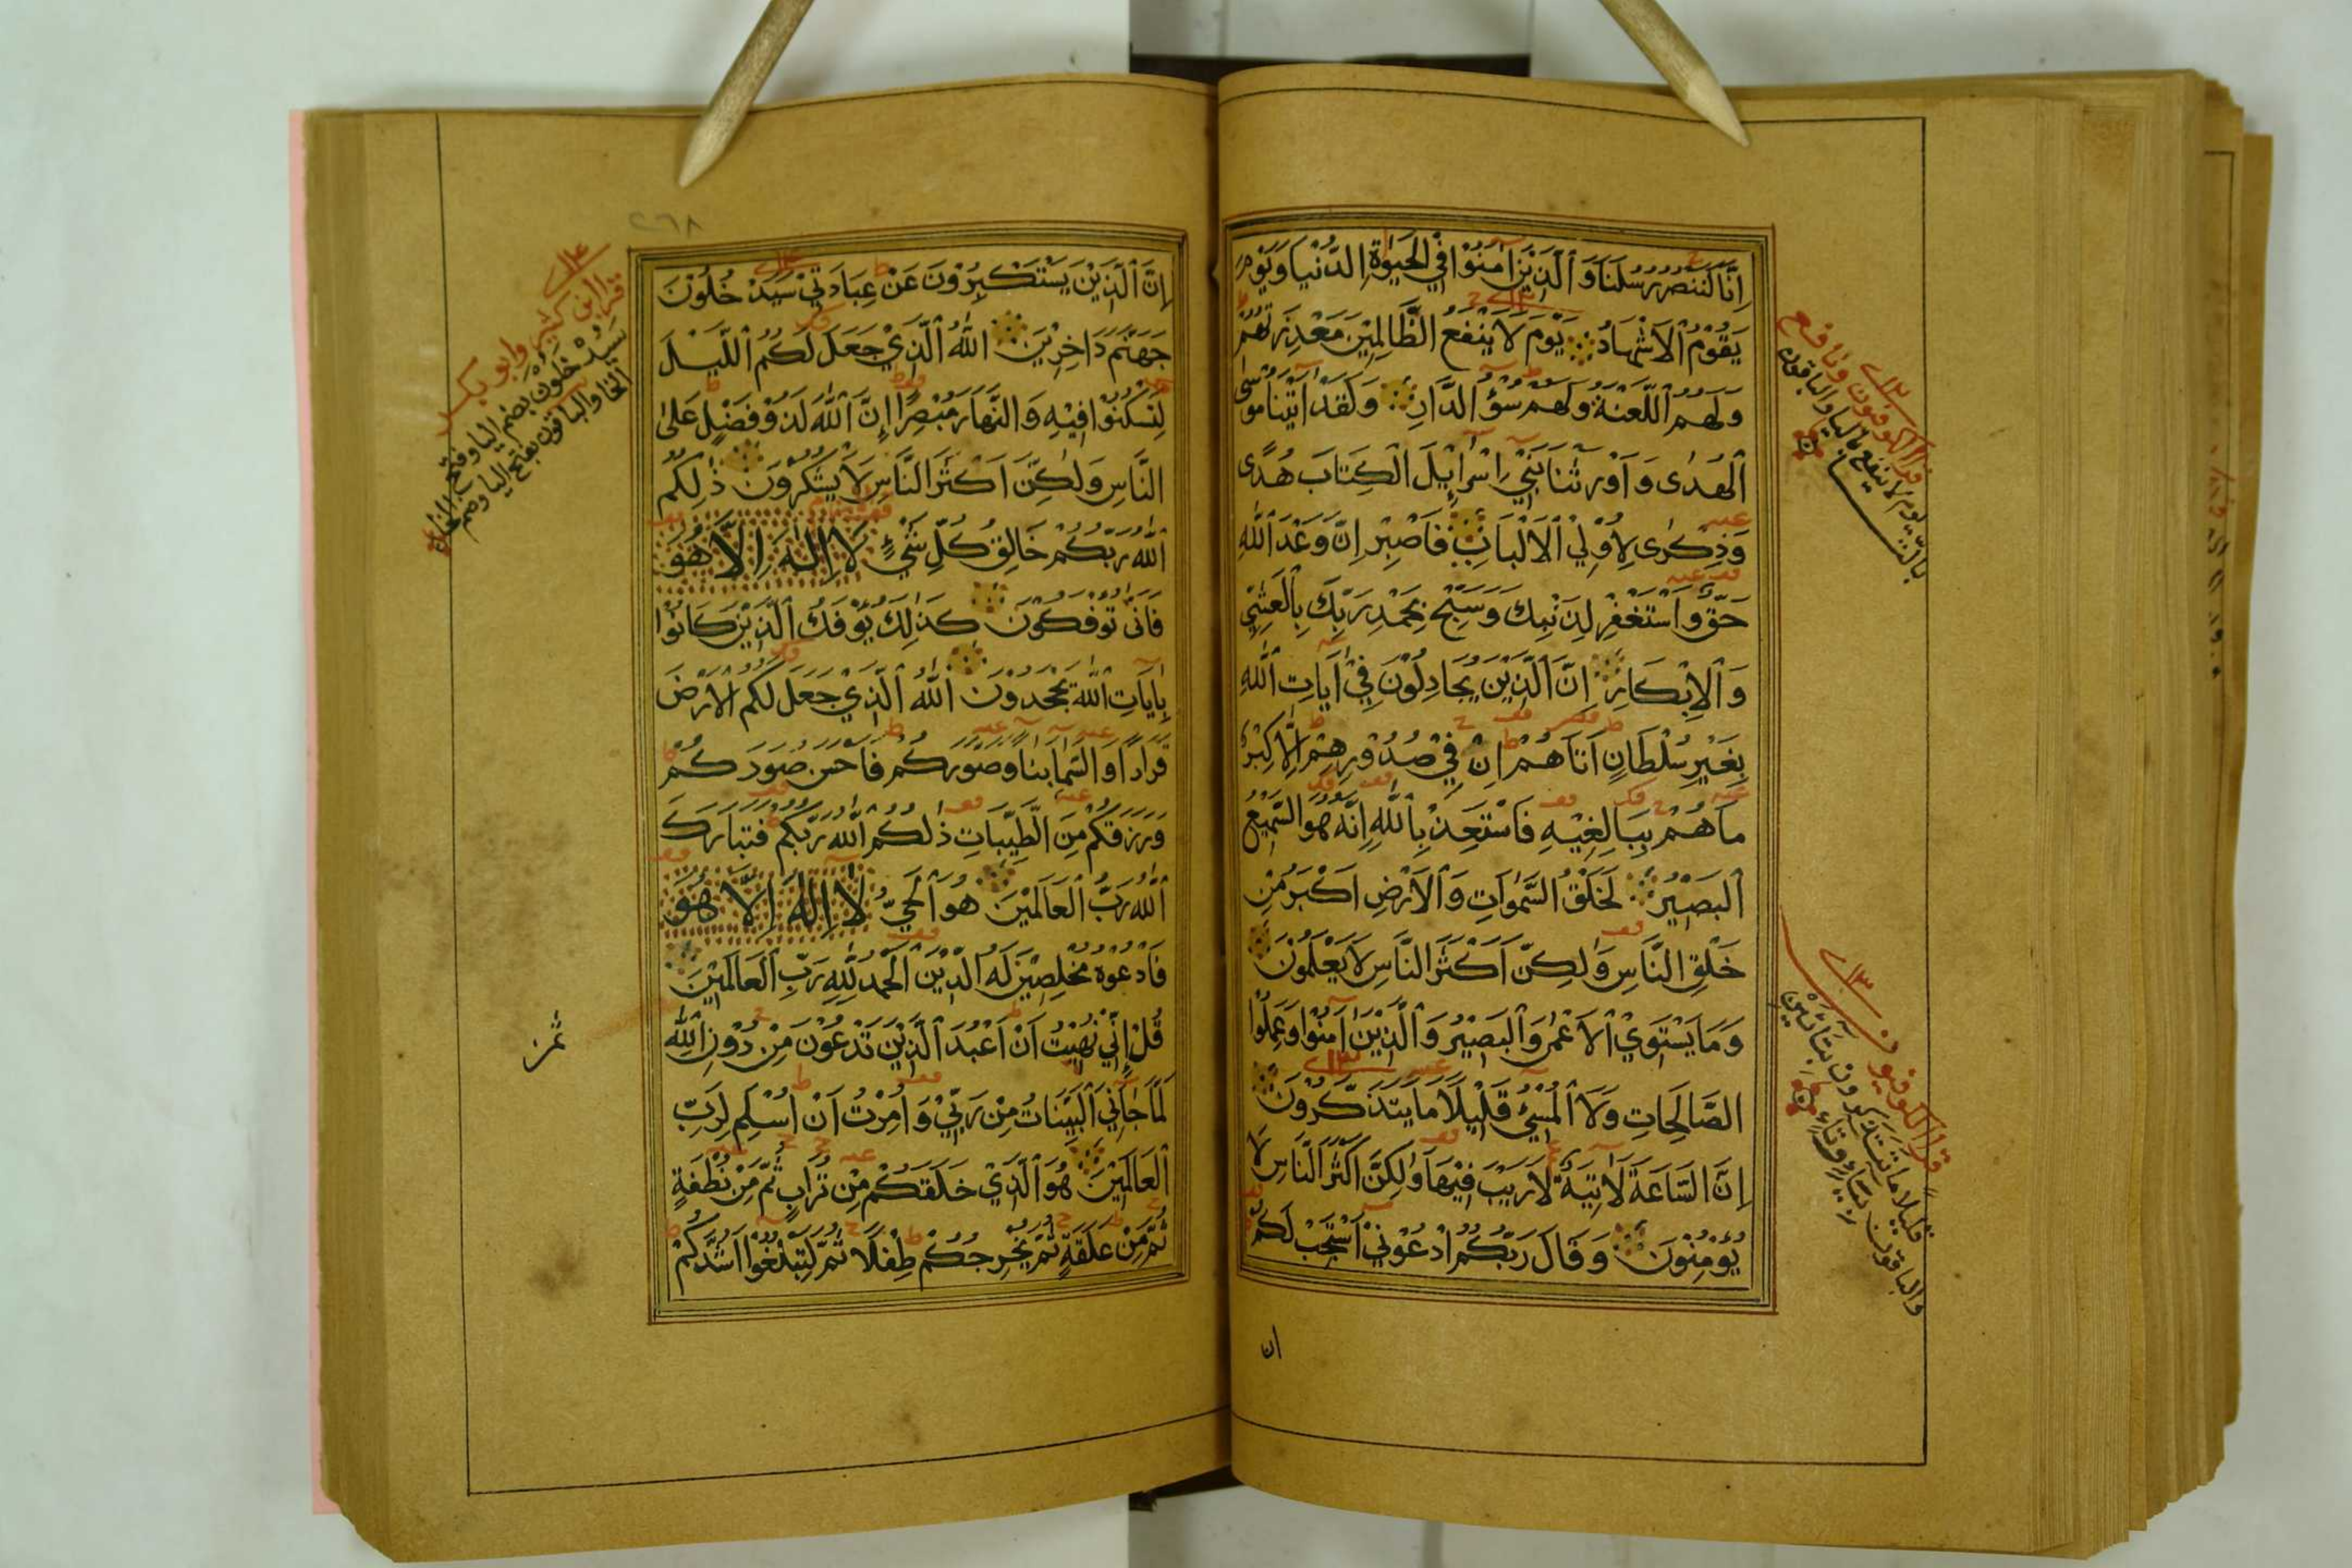 اِنَّا لَنَنْصُرُ رُسُلَنَا وَالَّذِيْنَ اٰمَنُوْا فِي الْحَيٰوةِ الدُّنْيَا وَيَوْمَ
يَقُوْمُ الْاَشْهَادُ يَوْمَ لَا يَنْفَعُ الظَّالِمِيْنَ مَعْذِرَتُهُمْ
وَلَهُمُ اللَّعْنَةُ وَلَهُمْ سُوْٓءُ الدَّارِ وَلَقَدْ اٰتَيْنَا مُوْسَى
الْهُدٰى وَاَوْرَثْنَا بَنِيْ اِسْرَآئِيْلَ الْكِتَابَ هُدًى
وَذِكْرٰى لِاُوْلِي الْاَلْبَابِ فَاصْبِرْ اِنَّ وَعْدَ اللّٰهِ
حَقٌّ وَاسْتَغْفِرْ لِذَنْبِكَ وَسَبِّحْ بِحَمْدِ رَبِّكَ بِالْعَشِيِّ
وَالْاِبْكَارِ اِنَّ الَّذِيْنَ يُجَادِلُوْنَ فِيْ اٰيَاتِ اللّٰهِ
بِغَيْرِ سُلْطَانٍ اَتَاهُمْ اِنْ فِيْ صُدُوْرِهِمْ اِلَّا كِبْرٌ
مَا هُمْ بِبَالِغِيْهِ فَاسْتَعِذْ بِاللّٰهِ اِنَّهُ هُوَ السَّمِيْعُ
الْبَصِيْرُ لَخَلْقُ السَّمٰوَاتِ وَالْاَرْضِ اَكْبَرُ مِنْ
خَلْقِ النَّاسِ وَلٰكِنَّ اَكْثَرَ النَّاسِ لَا يَعْلَمُوْنَ
وَمَا يَسْتَوِي الْاَعْمٰى وَالْبَصِيْرُ وَالَّذِيْنَ اٰمَنُوْا وَعَمِلُوا
الصَّالِحَاتِ وَلَا الْمُسِيْٓءُ قَلِيْلًا مَا يَتَذَكَّرُوْنَ
اِنَّ السَّاعَةَ لَاٰتِيَةٌ لَا رَيْبَ فِيْهَا وَلٰكِنَّ اَكْثَرَ النَّاسِ لَا
يُؤْمِنُوْنَ وَقَالَ رَبُّكُمُ ادْعُوْنِيْٓ اَسْتَجِبْ لَكُمْ
ان
قرا الكوفيون ونافع
يوم لا ينفع باليا والباقون
بالتا
قرا الكوفيون
قليلا ما تتذكرون بتائين
والباقون بياء وتاء
٢٦٨
اِنَّ الَّذِيْنَ يَسْتَكْبِرُوْنَ عَنْ عِبَادَتِيْ سَيَدْخُلُوْنَ
جَهَنَّمَ دَاخِرِيْنَ اللّٰهُ الَّذِيْ جَعَلَ لَكُمُ اللَّيْلَ
لِتَسْكُنُوْا فِيْهِ وَالنَّهَارَ مُبْصِرًا اِنَّ اللّٰهَ لَذُوْ فَضْلٍ عَلَى
النَّاسِ وَلٰكِنَّ اَكْثَرَ النَّاسِ لَا يَشْكُرُوْنَ ذٰلِكُمُ
اللّٰهُ رَبُّكُمْ خَالِقُ كُلِّ شَيْءٍ لَا اِلٰهَ اِلَّا هُوَ
فَاَنّٰى تُؤْفَكُوْنَ كَذٰلِكَ يُؤْفَكُ الَّذِيْنَ كَانُوْا
بِاٰيَاتِ اللّٰهِ يَجْحَدُوْنَ اللّٰهُ الَّذِيْ جَعَلَ لَكُمُ الْاَرْضَ
قَرَارًا وَالسَّمَآءَ بِنَآءً وَصَوَّرَكُمْ فَاَحْسَنَ صُوَرَكُمْ
وَرَزَقَكُمْ مِنَ الطَّيِّبَاتِ ذٰلِكُمُ اللّٰهُ رَبُّكُمْ فَتَبَارَكَ
اللّٰهُ رَبُّ الْعَالَمِيْنَ هُوَ الْحَيُّ لَا اِلٰهَ اِلَّا هُوَ
فَادْعُوْهُ مُخْلِصِيْنَ لَهُ الدِّيْنَ اَلْحَمْدُ لِلّٰهِ رَبِّ الْعَالَمِيْنَ
قُلْ اِنِّيْ نُهِيْتُ اَنْ اَعْبُدَ الَّذِيْنَ تَدْعُوْنَ مِنْ دُوْنِ اللّٰهِ
لَمَّا جَآءَنِيَ الْبَيِّنَاتُ مِنْ رَبِّيْ وَاُمِرْتُ اَنْ اُسْلِمَ لِرَبِّ
الْعَالَمِيْنَ هُوَ الَّذِيْ خَلَقَكُمْ مِنْ تُرَابٍ ثُمَّ مِنْ نُطْفَةٍ
ثُمَّ مِنْ عَلَقَةٍ ثُمَّ يُخْرِجُكُمْ طِفْلًا ثُمَّ لِتَبْلُغُوْا اَشُدَّكُمْ
قرا ابن كثير وابو بكر
سيدخلون بضم اليا وفتح
الخا والباقون بفتح اليا وضم الخاء
ثمن